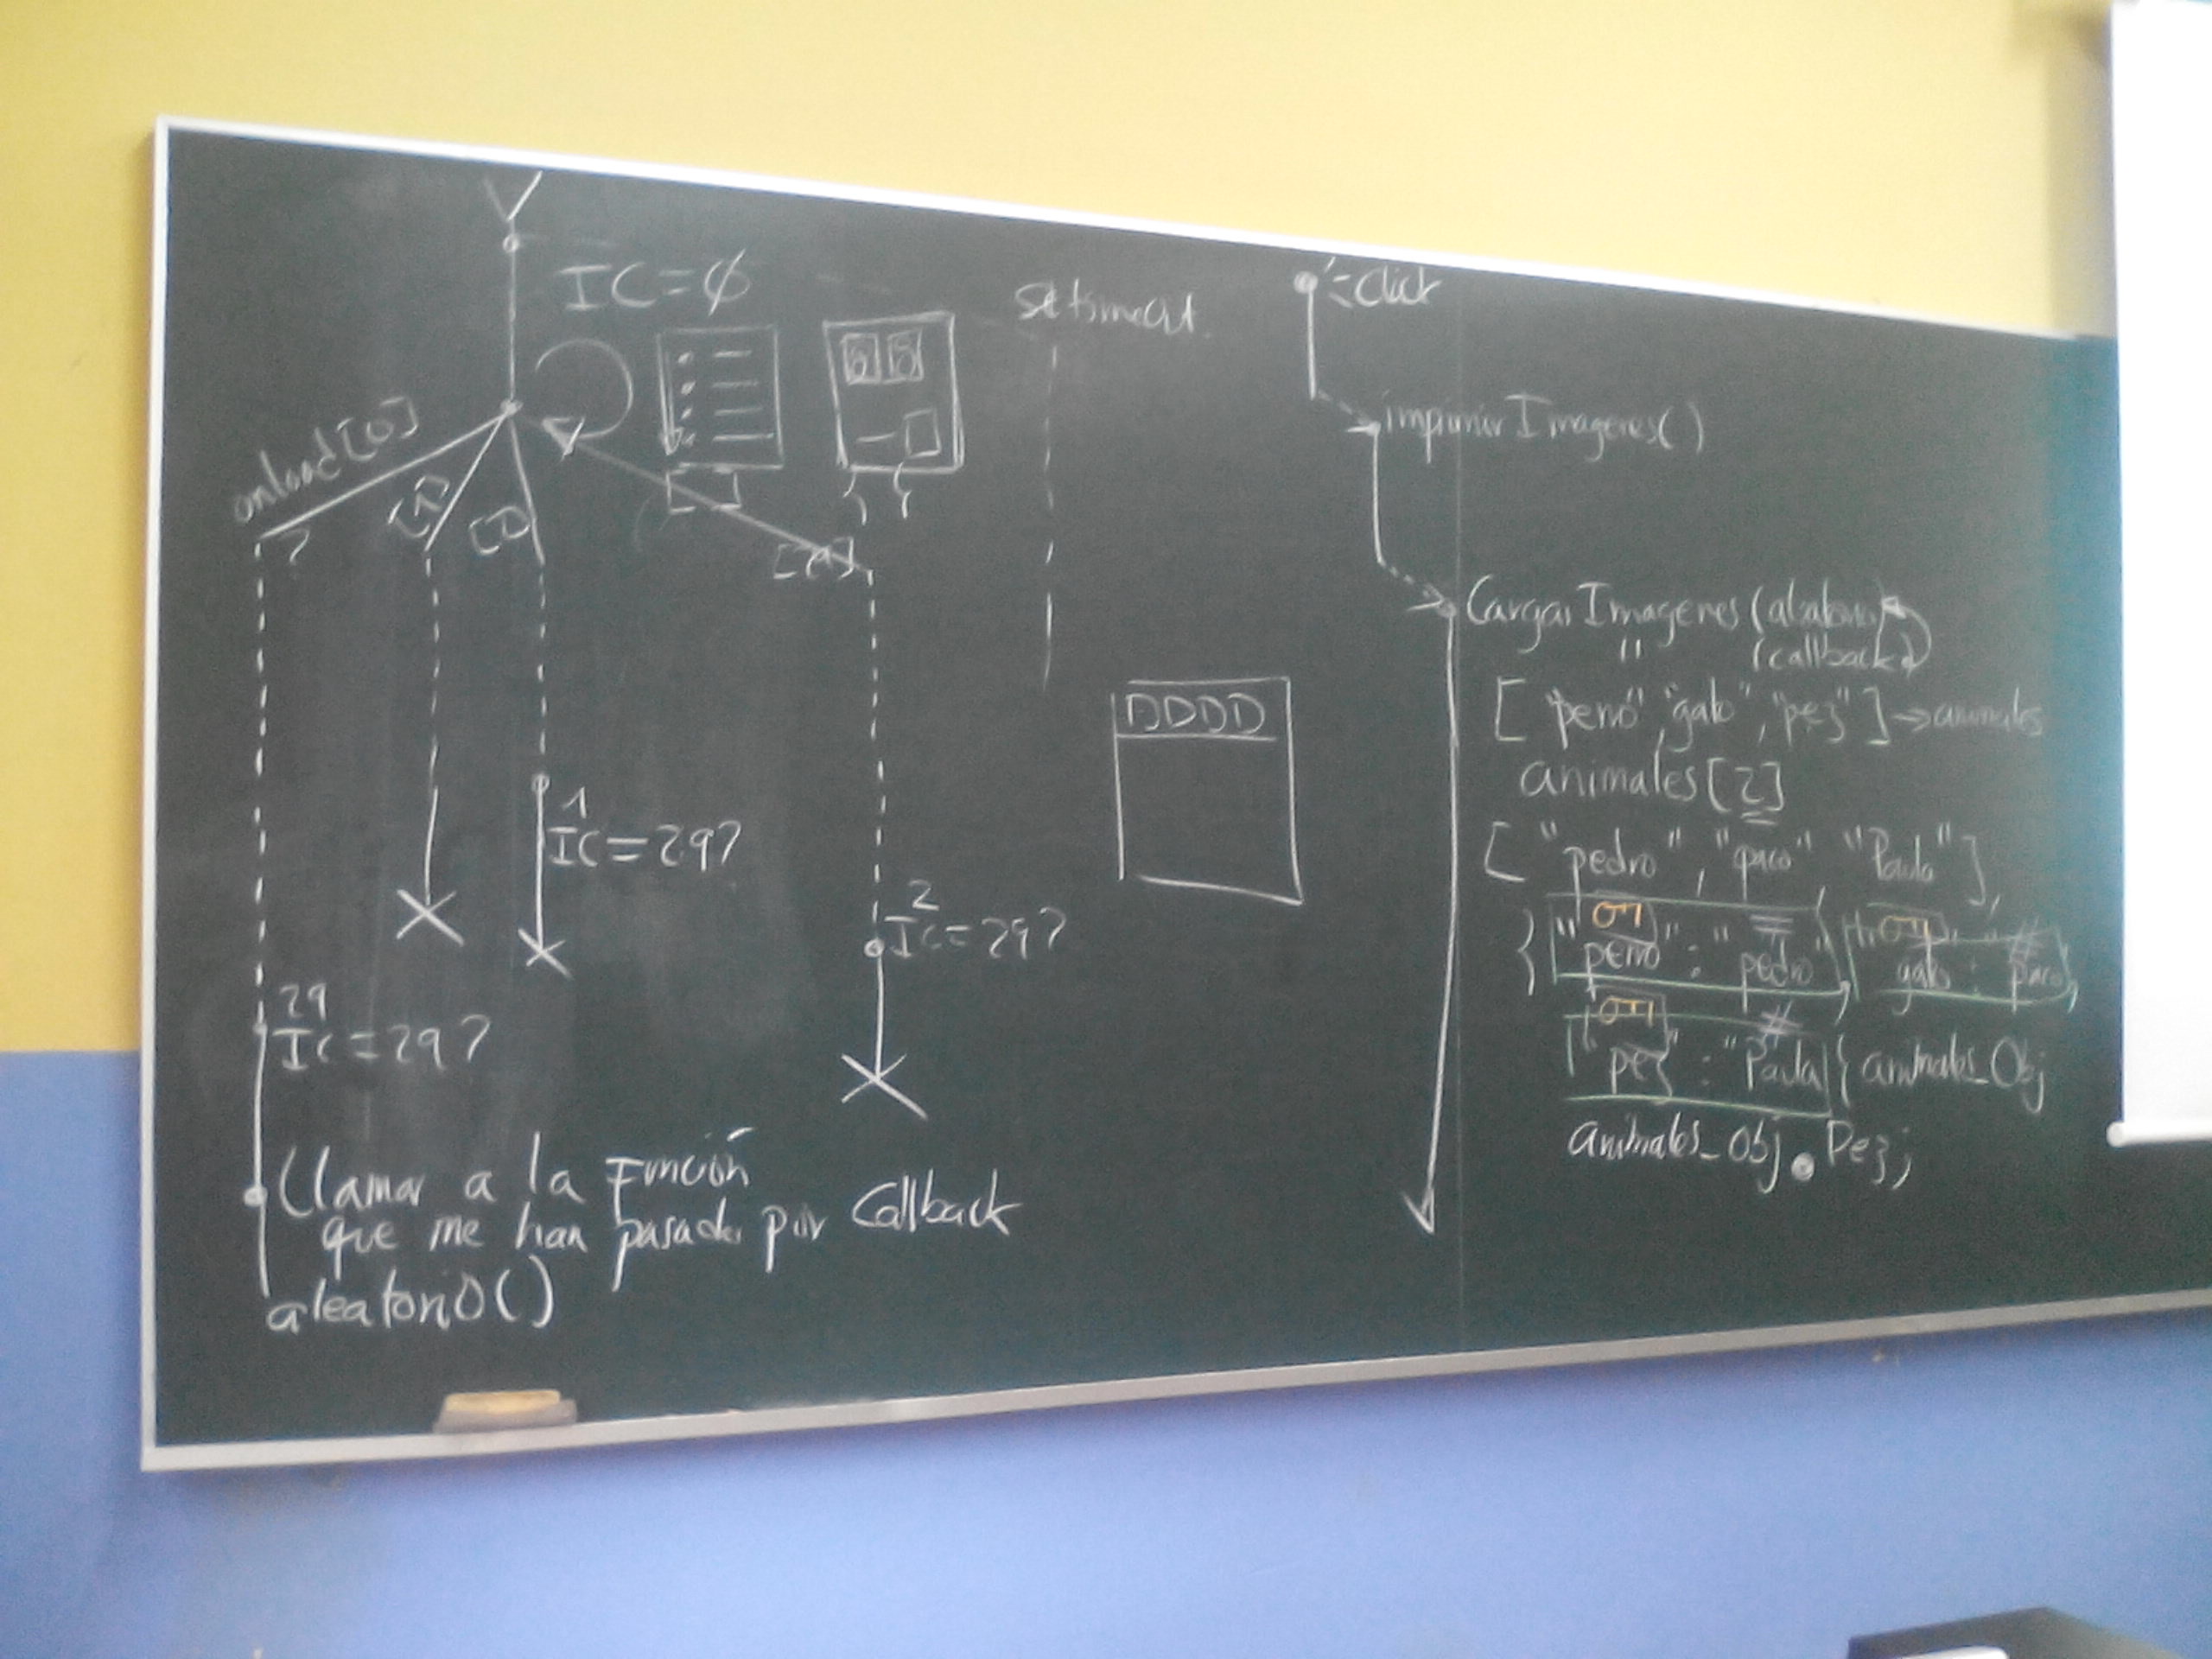 IC=0
onload[0]
[1]
[2]
[29]
?
1
IC=29?
2
IC=29?
29
IC=29?
Llamar a la Función
que me han pasado por Callback
aleatorio()
DDDD
click
imprimirImagenes()
CargarImagenes(aleatorio)
" (callback)
["perro","gato","pez"]→animales
animales[2]
["pedro","paco" "Paula"],
{"perro":"pedro","gato":"paco",
"pez":"Paula"{animales_Obj
animales_Obj.Pez;